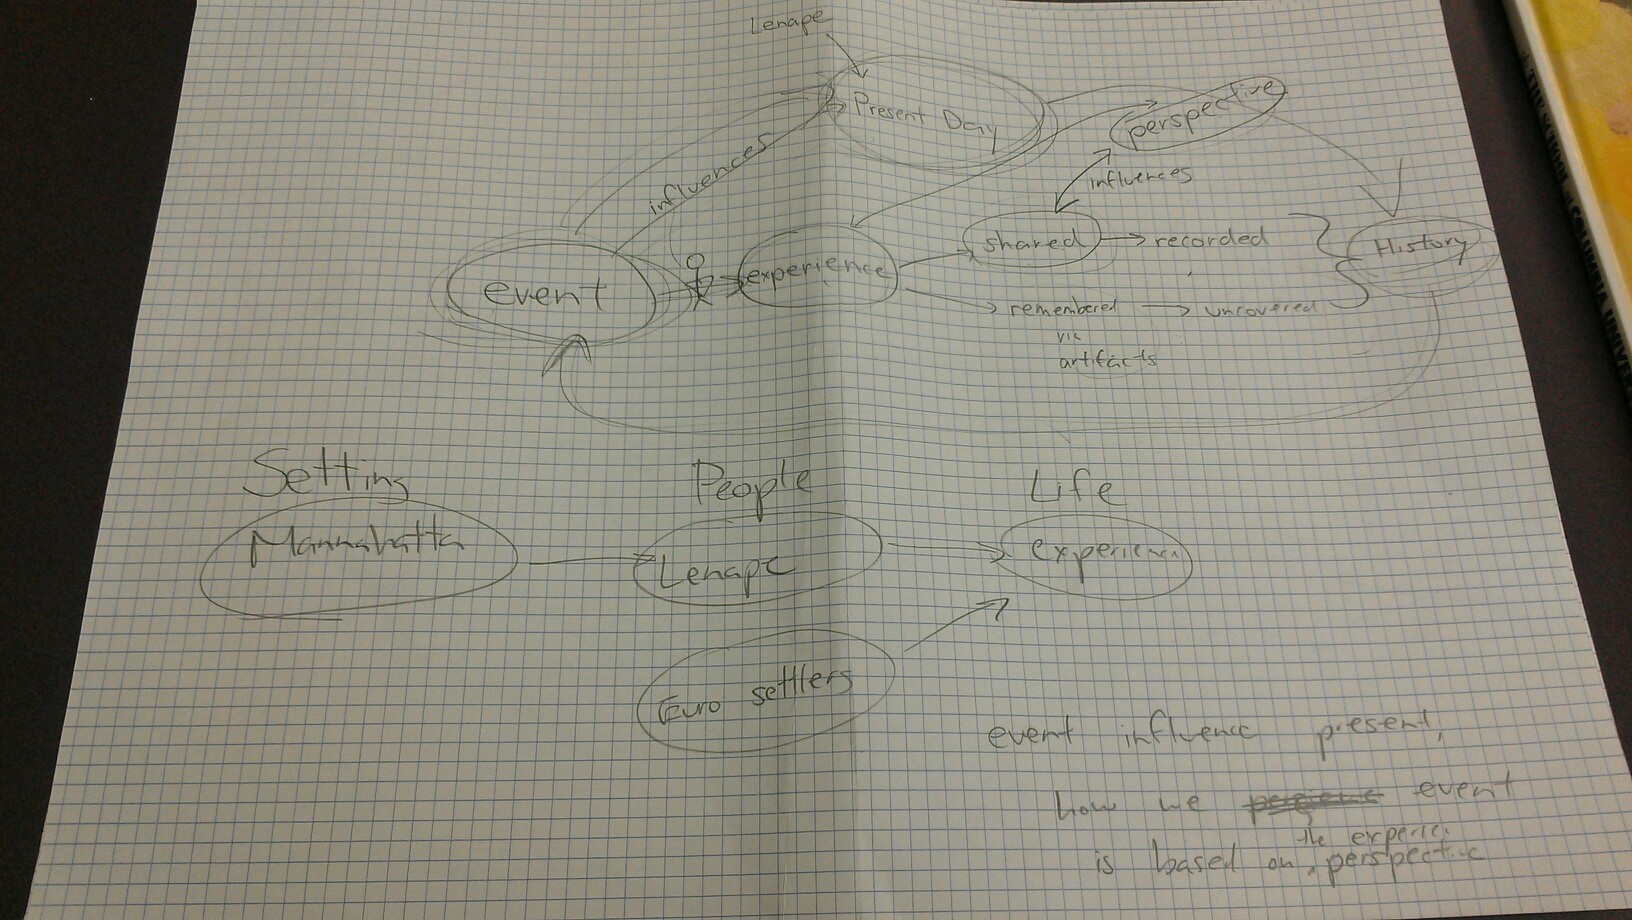 Lenape
Present Day
perspective
influences
influences
shared
recorded
History
event
experience
remembered
uncovered
via
artifacts
Setting
People
Life
Mannahatta
Lenape
experience
Euro settlers
event influence present,
how we event
the experie.
is based on perspective